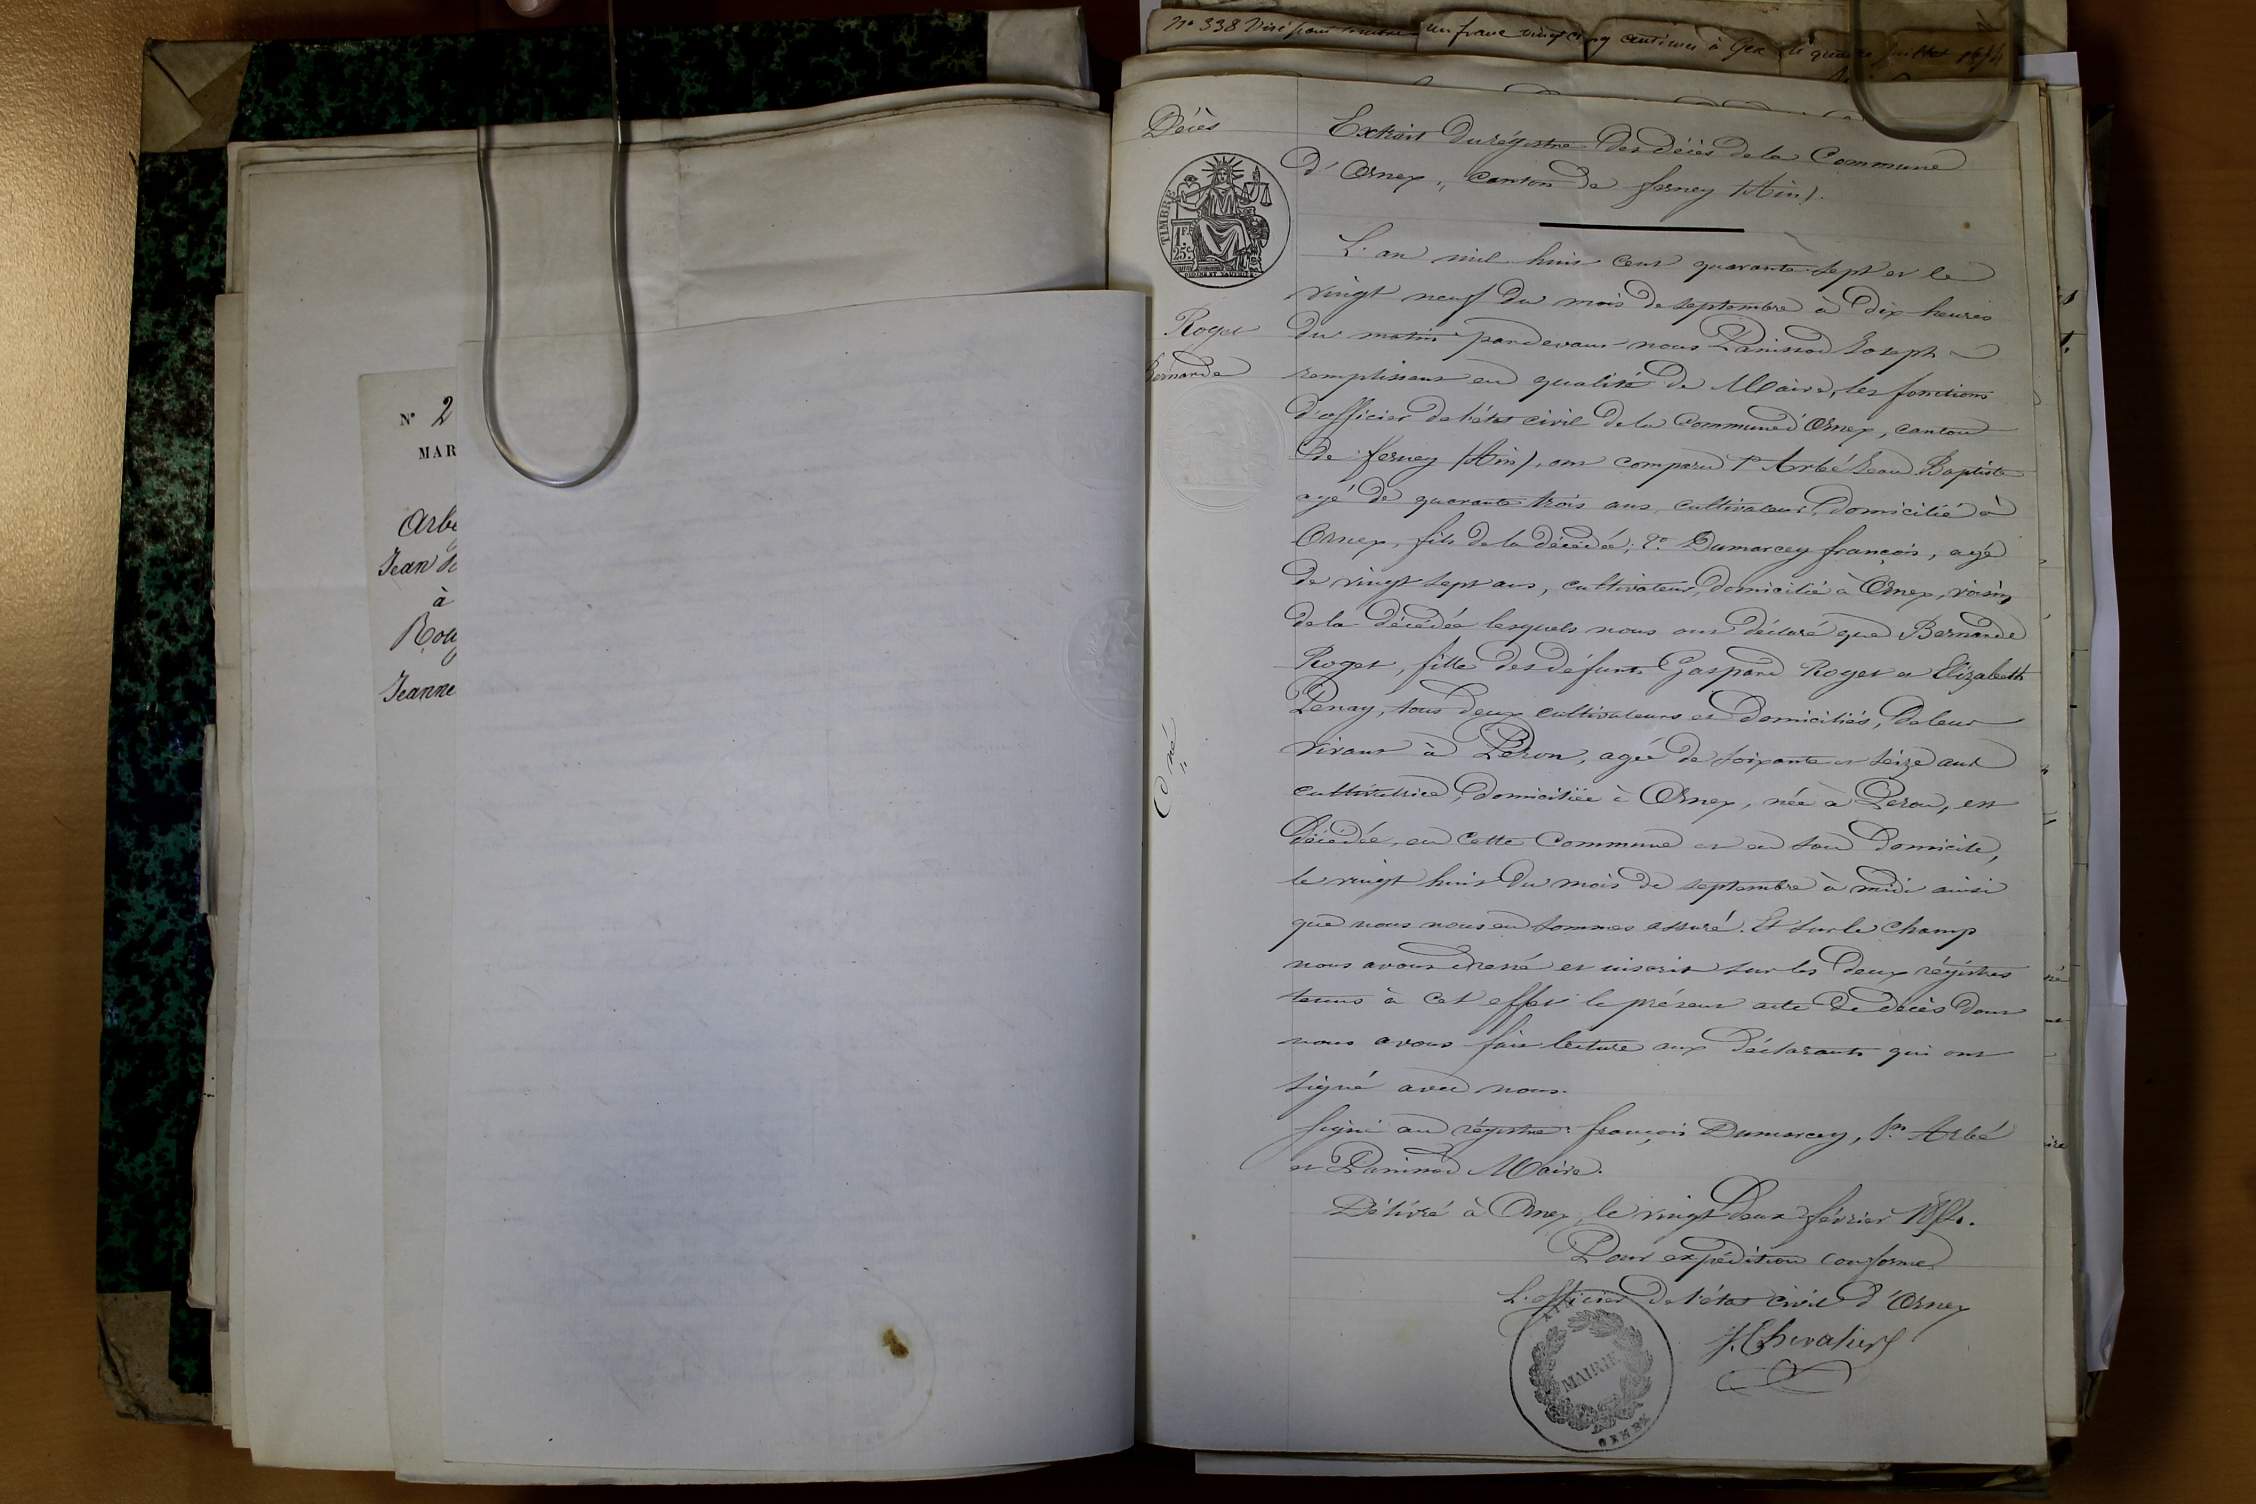 N° 338 Visé pour timbre un franc vingt cinq centimes à Gex le quinze juillet
N° 2
MAR
Arbe
Jean
à
Rog
Jeanne
Décès
TIMBRE
1 FR
25 c.
Roget
Bernarde
Extrait du régistre des décès de la Commune
d'Ornex, canton de ferney (Ain).
L'an mil huit cent quarante sept et le
vingt neuf du mois de septembre à dix heures
du matin pardevant nous Panissod Joseph
remplissant en qualité de Maire, les fonctions
d'officier de l'état civil de la Commune d'Ornex, canton
de ferney (Ain), ont comparu 1° Arbé Jean Baptiste
agé de quarante trois ans, cultivateur, domicilié à
Ornex, fils de la décédé; 2° Dumarcey françois, agé
de vingt sept ans, cultivateur, domicilié à Ornex, voisin
de la décédée lesquels nous ont déclaré que Bernarde
Roget, fille des défunts Gaspard Roget et Elizabeth
Penay, tous deux cultivateurs et domiciliés, de leur
vivant à Péron, agée de soixante et seize ans
cultivatrice, domiciliée à Ornex, née à Peron, est
décédée, en cette Commune et en son domicile,
le vingt huit du mois de septembre à midi ainsi
que nous nous en sommes assuré. Et sur le champ
nous avons dressé et inscrit sur les deux régistres
tenus à cet effet le présent acte de décès dont
nous avons fait lecture aux déclarants qui ont
signé avec nous.
Signé au régistre: françois Dumarcey, Jn Arbé
et Panissod Maire.
Délivré à Ornex, le vingt deux février
Pour expédition conforme
L'officier de l'état civil d'Ornex
J. Chevalier
MAIRIE
ORNEX